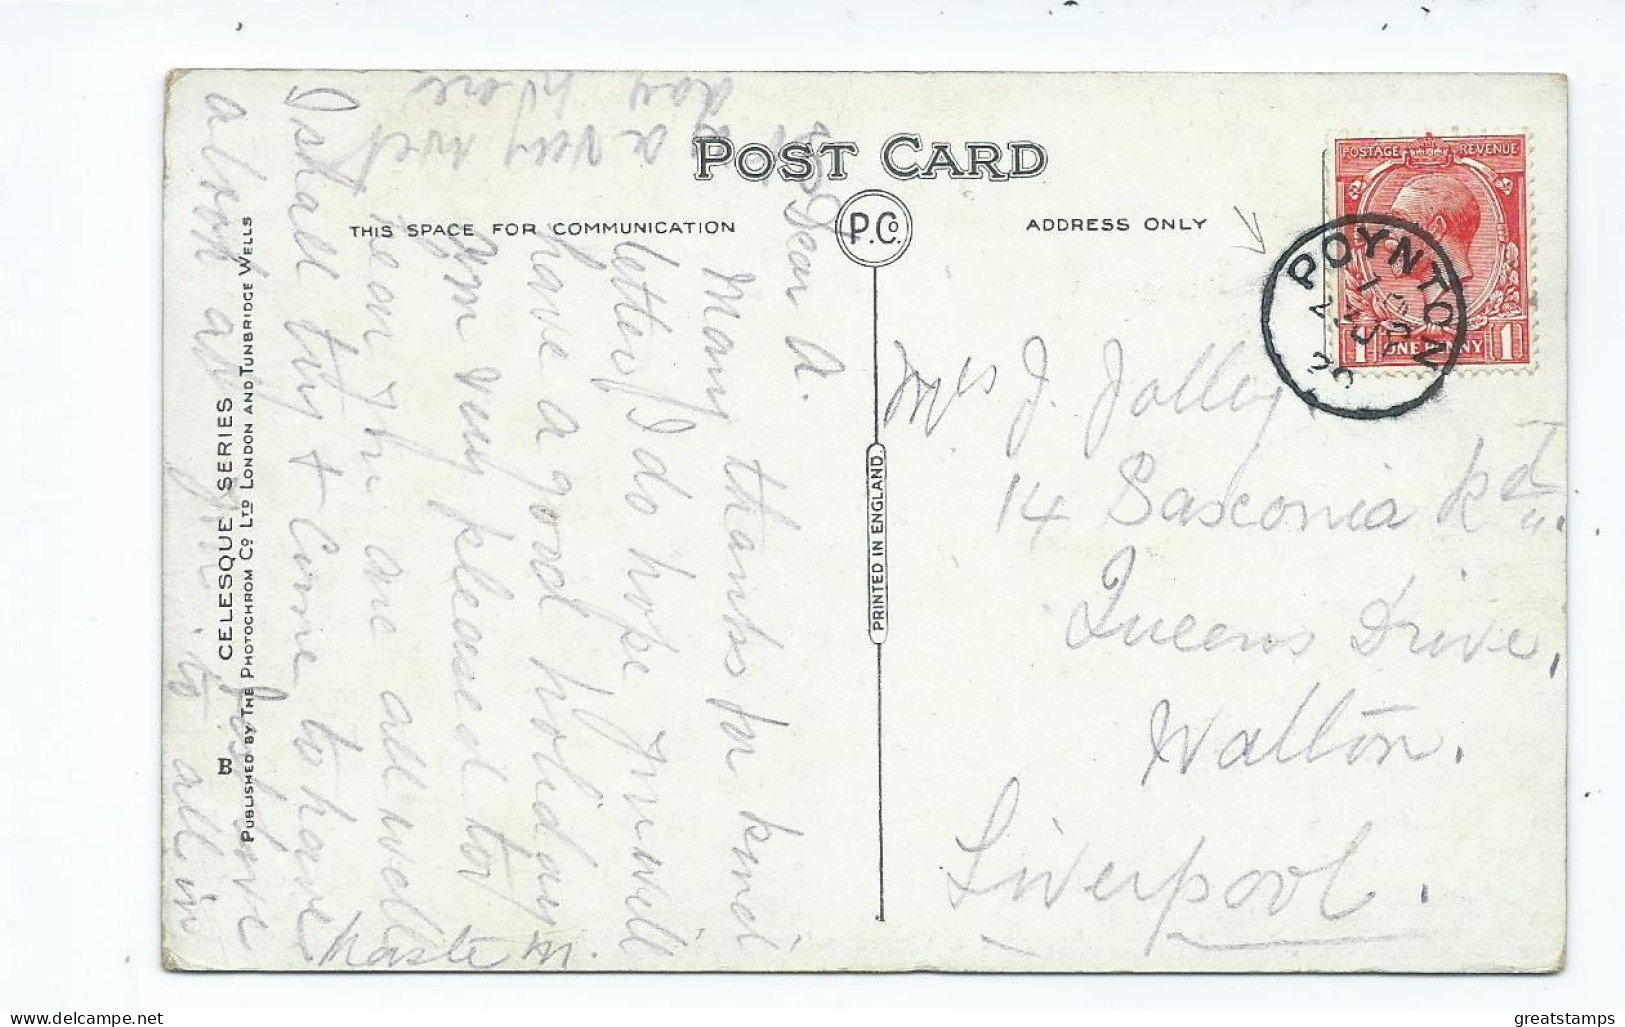 POST CARD
THIS SPACE FOR COMMUNICATION
P.Co.
ADDRESS ONLY
POSTAGE REVENUE
1 ONE PENNY 1
POYNTON
20
PRINTED IN ENGLAND.
B CELESQUE SERIES
PUBLISHED BY THE PHOTOCHROM CO LTD LONDON AND TUNBRIDGE WELLS
Mrs J. Jolley
14 Sasconia Rd
Queens Drive,
Walton.
Liverpool.
Dear A.
Many thanks for kind
letters I do hope you will
have a good holiday
am very pleased to
hear you are all well
I shall try & Come to have
a look at you
love
to all in
haste M.
a very wet
day here
delcampe.net
greatstamps